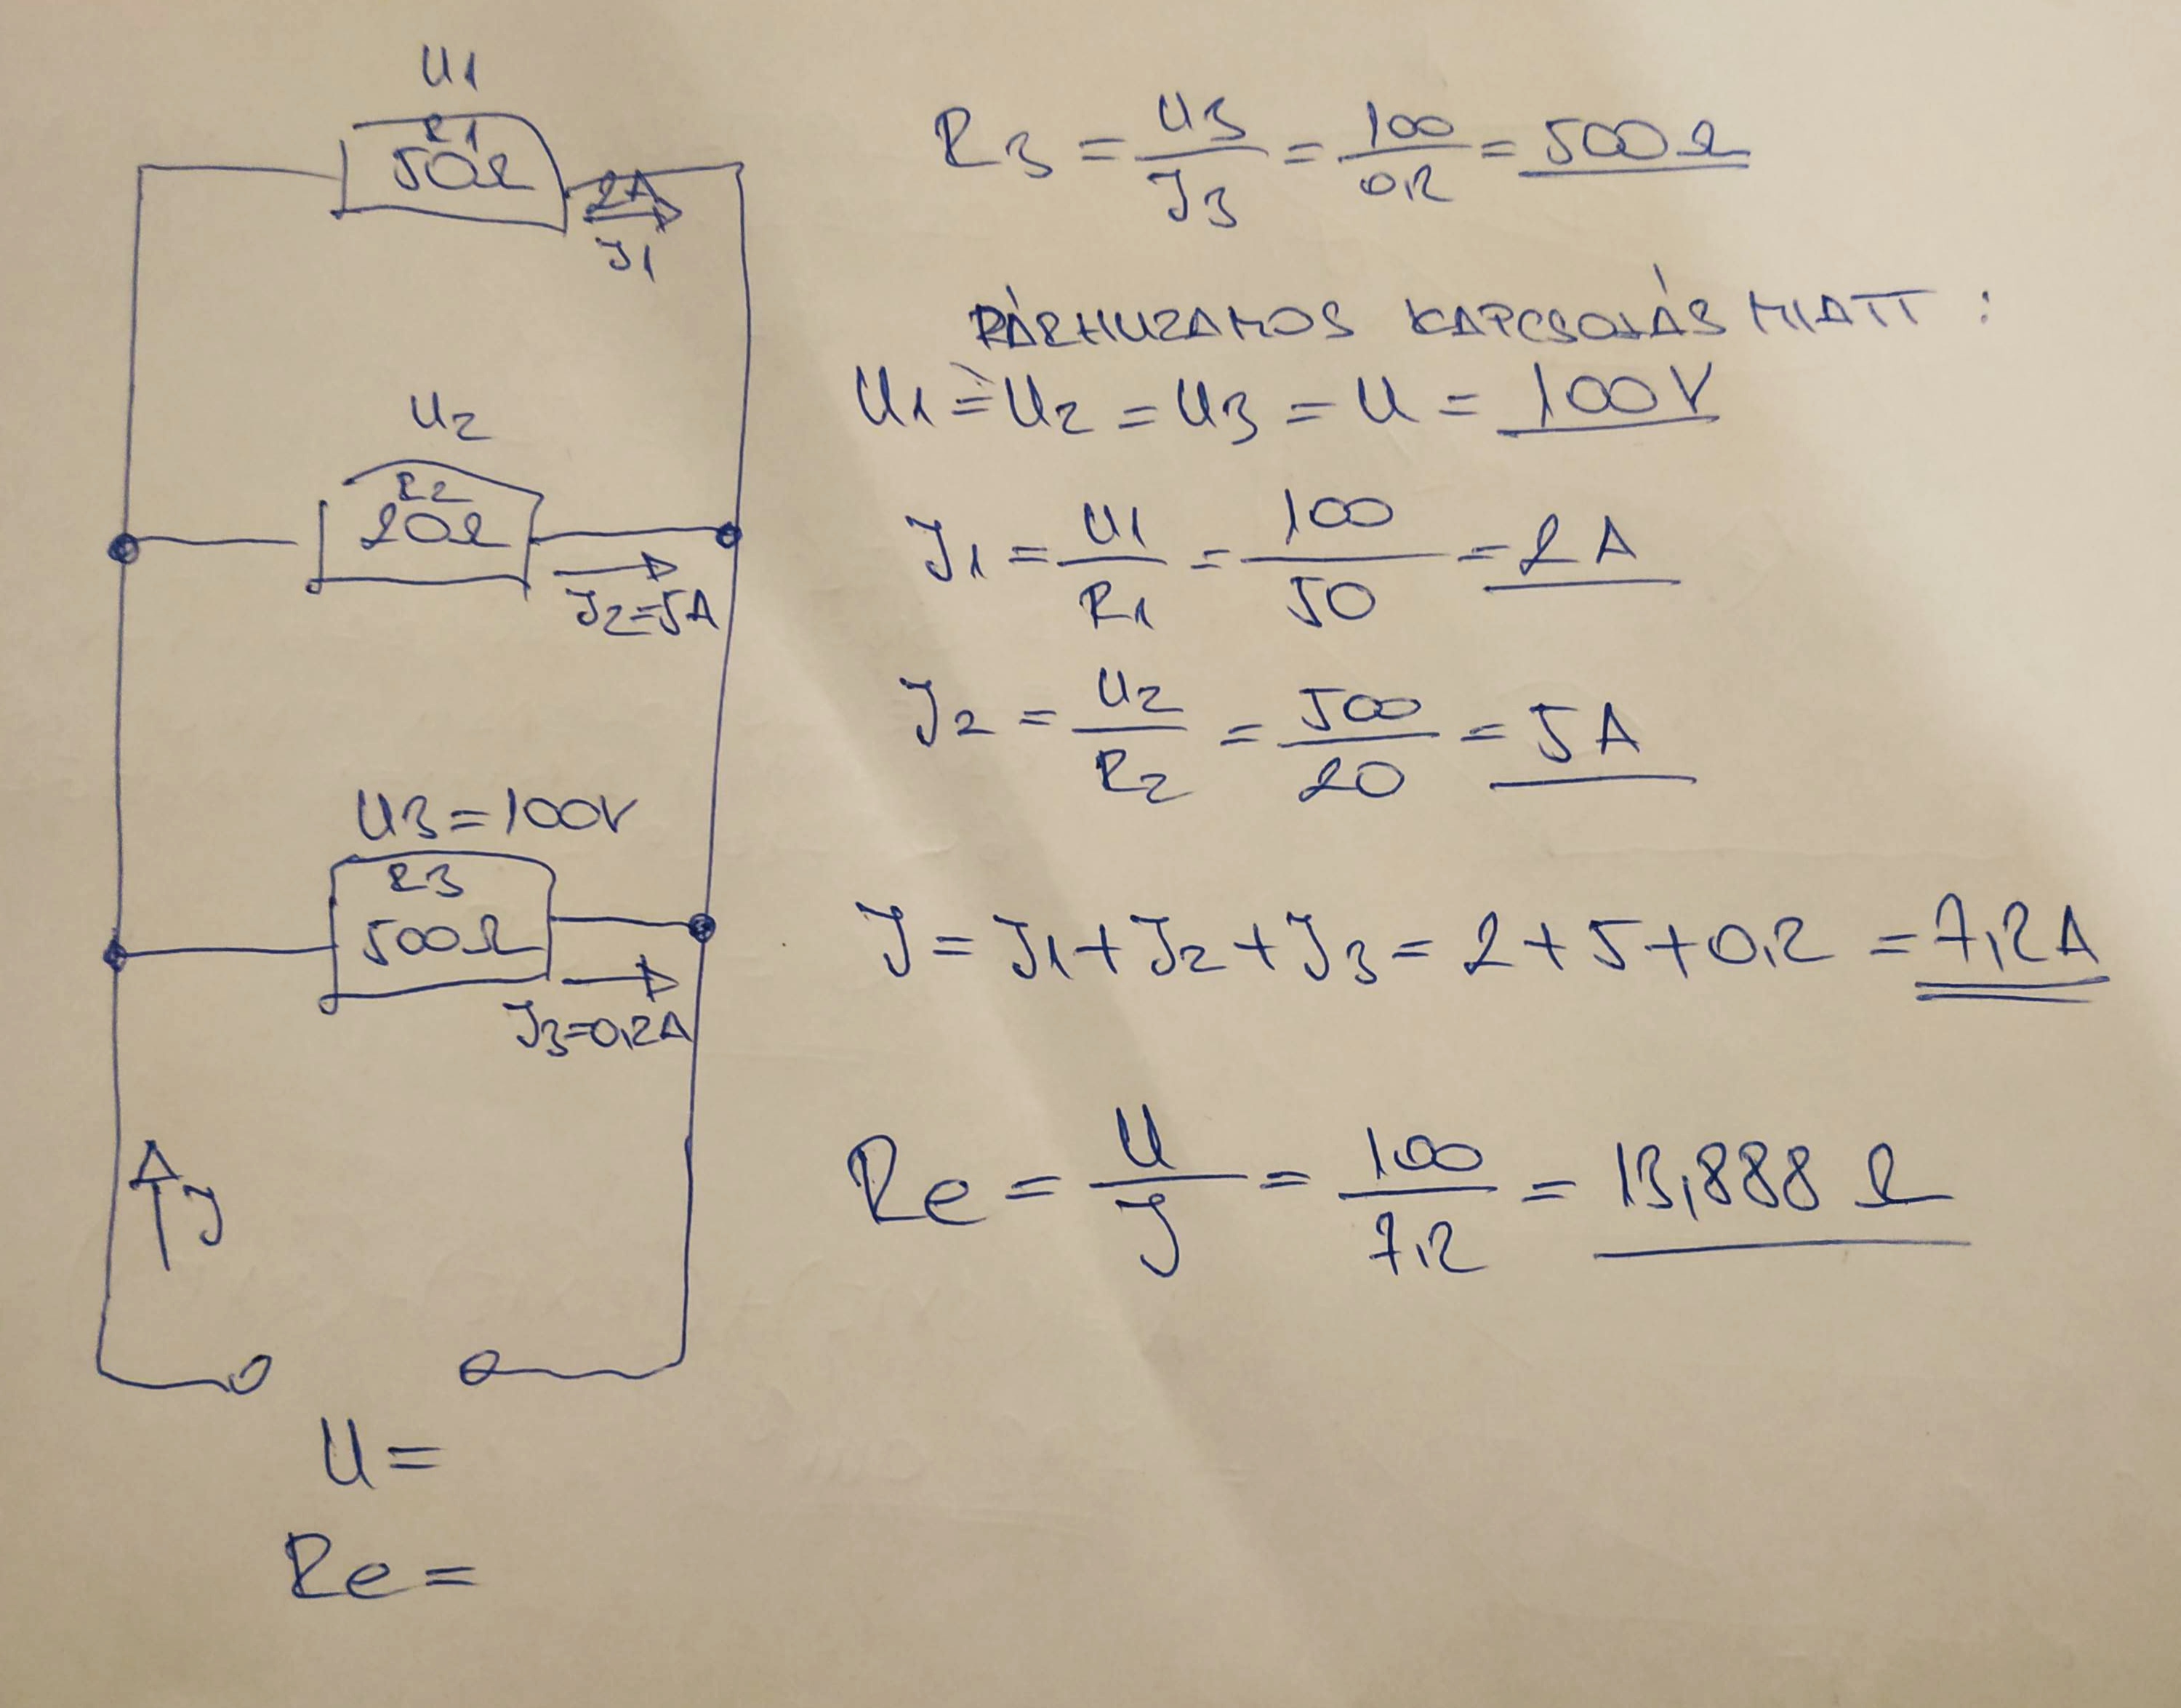 U1
R1
50Ω
2A
I1
U2
R2
20Ω
I2=5A
U3=100V
R3
500Ω
I3=0,2A
I
U=
Re=
R3 = U3/I3 = 100/0,2 = 500Ω
PÁRHUZAMOS KAPCSOLÁS MIATT:
U1=U2=U3=U=100V
I1 = U1/R1 = 100/50 = 2A
I2 = U2/R2 = 500/20 = 5A
I=I1+I2+I3=2+5+0,2=7,2A
Re = U/I = 100/7,2 = 13,888 Ω